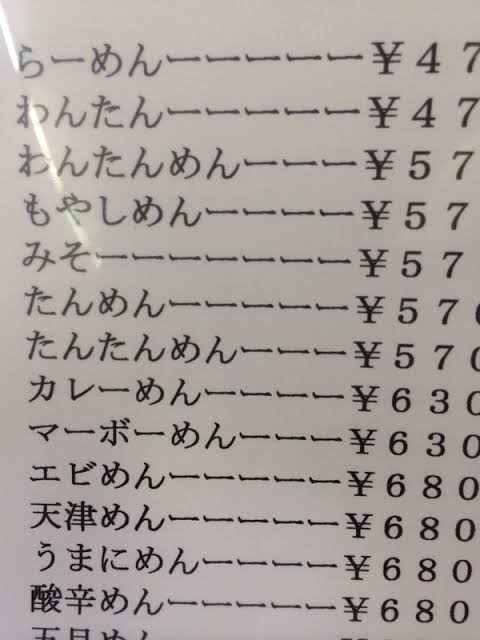 らーめんーーーーー￥４７
わんたんーーーーー￥４７
わんたんめんーーー￥５７
もやしめんーーーー￥５７
みそーーーーーーー￥５７
たんめんーーーーー￥５７０
たんたんめんーーー￥５７０
カレーめんーーーー￥６３０
マーボーめんーーー￥６３０
エビめんーーーーー￥６８０
天津めんーーーーー￥６８０
うまにめんーーーー￥６８０
酸辛めんーーーーー￥６８０
五目めん